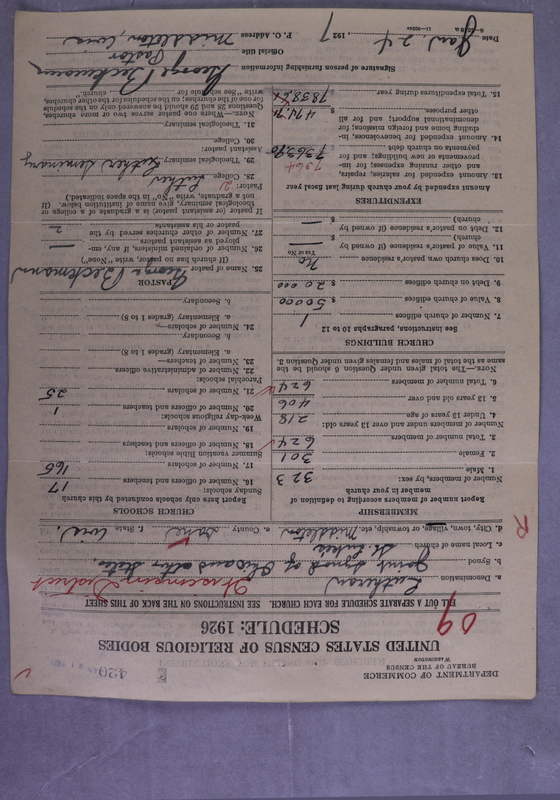 DEPARTMENT OF COMMERCE
BUREAU OF THE CENSUS
WASHINGTON
420
UNITED STATES CENSUS OF RELIGIOUS BODIES
SCHEDULE: 1926
FILL OUT A SEPARATE SCHEDULE FOR EACH CHURCH. SEE INSTRUCTIONS ON THE BACK OF THIS SHEET
a. Denomination Lutheran
b. Synod Joint Synod of Ohio and other States
c. Local name of church St. Luke's
d. City, town, village, or township, etc. Middleton e. County Dane f. State Wis.
MEMBERSHIP
Report number of members according to definition of
member in your church
Number of members, by sex:
1. Male 323
2. Female 301
3. Total number of members 624
Number of members under and over 13 years old:
4. Under 13 years of age 218
5. 13 years old and over 406
6. Total number of members 624
NOTE.—The total given under Question 6 should be the
same as the total of males and females given under Question 3.
CHURCH BUILDINGS
See instructions, paragraphs 10 to 12
7. Number of church edifices 1
8. Value of church edifices $ 50000
9. Debt on church edifices $ 20000
10. Does church own pastor's residence No
Yes or No
11. Value of pastor's residence (if owned by
church) $ —
12. Debt on pastor's residence (if owned by
church) $ —
EXPENDITURES
Amount expended by your church during last fiscal year
13. Amount expended for salaries, repairs,
and other running expenses; for im-
provements or new buildings; and for
payments on church debt 7364
14. Amount expended for benevolences, in-
cluding home and foreign missions; for
denominational support; and for all
other purposes $
15. Total expenditures during year
CHURCH SCHOOLS
Report here only schools conducted by this church
Sunday schools:
16. Number of officers and teachers 17
17. Number of scholars 165
Summer vacation Bible schools:
18. Number of officers and teachers
19. Number of scholars
Week-day religious schools:
20. Number of officers and teachers 1
21. Number of scholars 25
Parochial schools:
22. Number of administrative officers
23. Number of teachers—
a. Elementary (grades 1 to 8)
b. Secondary
24. Number of scholars—
a. Elementary (grades 1 to 8)
b. Secondary
PASTOR
25. Name of pastor George Beckmann
(If church has no pastor, write "None")
26. Number of assistant ministers, if any, em-
ployed as assistant pastors —
27. Number of other churches served by the
pastor or his assistants 2
If pastor (or assistant pastor) is a graduate of a college or
theological seminary, give name of institution below. (If
not a graduate, write "No" in the space indicated.)
Pastor:
28. College Luther
29. Theological seminary Luther Seminary
Assistant pastor:
30. College
31. Theological seminary
NOTE.—Where one pastor serves two or more churches,
Questions 28 and 29 should be answered only on the schedule
for one of the churches; on the schedules for the other churches,
write "See schedule for church."
Signature of person furnishing information
George Beckmann
Official title Pastor
P. O. Address Middleton, Wis
Date Jan 24 1927